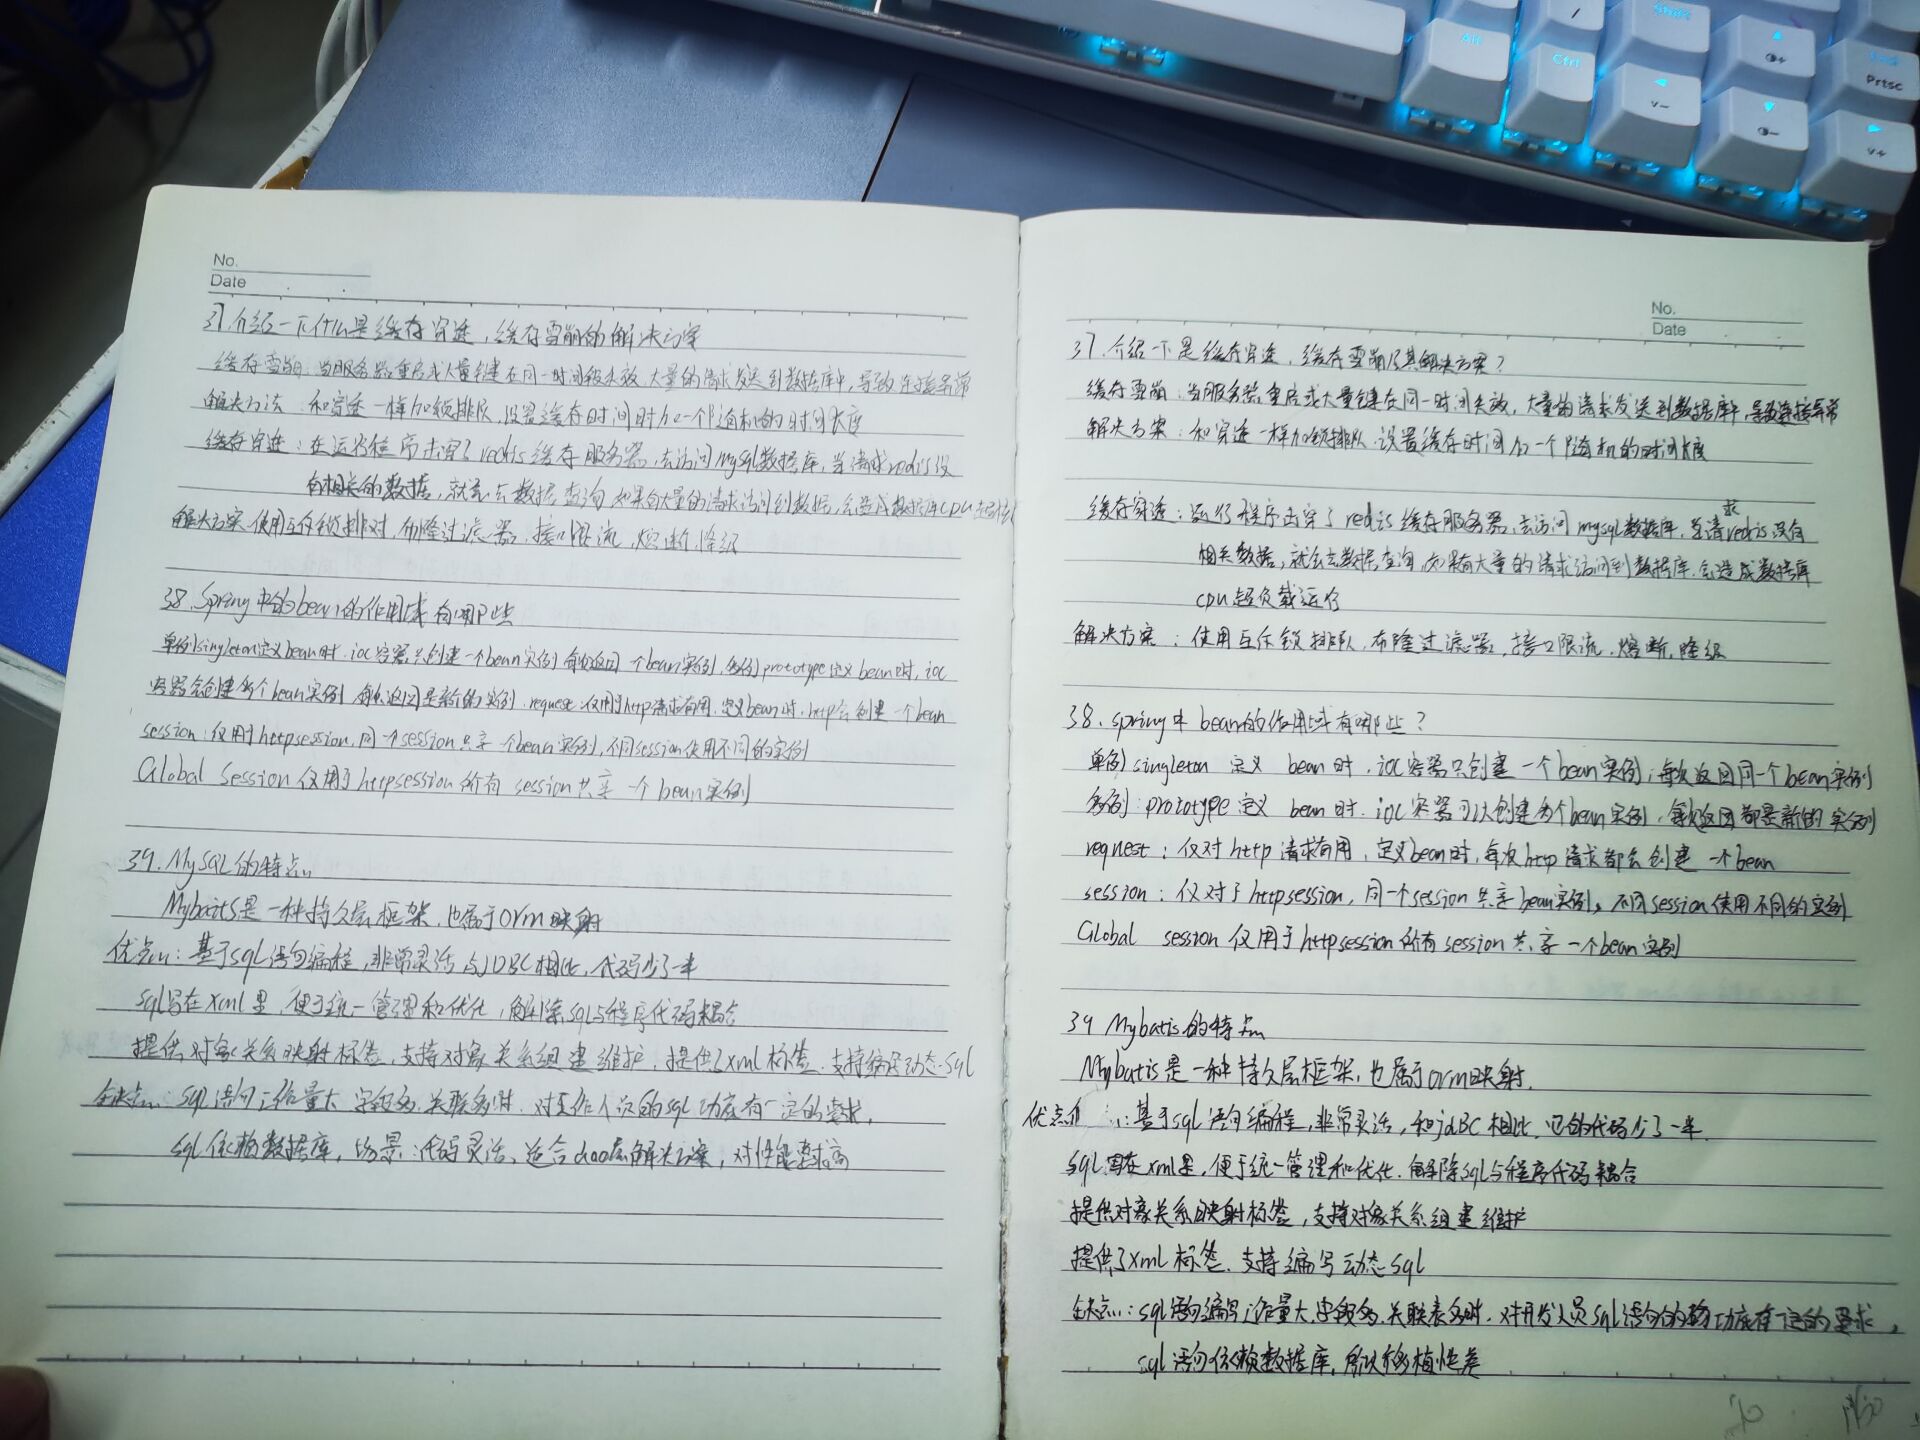 No.
Date
37.介绍一下什么是缓存穿透,缓存雪崩的解决方案
缓存雪崩:当服务器重启或大量键在同一时间段失效,大量的请求发送到数据库中,导致连接异常
解决方法:和穿透一样加锁排队,设置缓存时间时加一个随机的时间长度
缓存穿透:在运行程序击穿了redis缓存服务器,去访问mysql数据库,当请求redis没
有相关的数据,就会去数据查询,如果有大量的请求访问到数据,会造成数据库CPU
解决方案 使用互斥锁排队,布隆过滤器,接口限流,熔断,降级
38.Spring中的bean的作用域有哪些
单例singleton定义bean时,ioc容器只创建一个bean实例,每次返回一个bean实例,多例prototype定义bean时,ioc
容器会创建多个bean实例,每次返回是新的实例,request:仅用于http请求有用,定义bean时,http会创建一个bean
session:仅用于httpsession,同一个session共享一个bean实例,不同session使用不同的实例
Global Session 仅用于httpsession 所有 session共享一个bean实例
39.MySQL的特点
Mybaits是一种持久层框架,也属于orm映射
优点:基于sql语句编程,非常灵活,与JDBC相比,代码少了一半
sql写在xml里,便于统一管理和优化,解除sql与程序代码耦合
提供对象关系映射标签,支持对象关系组建维护,提供了xml标签,支持编写动态sql
缺点:sql语句工作量大,字段多,关联多时,对工作人员的sql功底有一定的要求,
sql依赖数据库,场景:代码灵活,适合dao层解决方案,对性能要求高
No.
Date
37.介绍一下是缓存穿透,缓存雪崩及其解决方案?
缓存雪崩:当服务器重启或大量键在同一时间失效,大量的请求发送到数据库中,导致连接异常
解决方案:和穿透一样加锁排队,设置缓存时间加一个随机的时间长度
缓存穿透:运行程序击穿了redis缓存服务器,去访问mysql数据库,当请求redis没有
相关数据,就会去数据查询,如果有大量的请求访问到数据库,会造成数据库
cpu超负载运行
解决方案:使用互斥锁排队,布隆过滤器,接口限流,熔断,降级
38.spring中bean的作用域有哪些?
单例singleton 定义 bean时,ioc容器只创建一个bean实例,每次返回同一个bean实例
多例:prototype定义 bean时,ioc容器可以创建多个bean实例,每次返回都是新的实例
request:仅对http请求有用,定义bean时,每次http请求都会创建一个bean
session:仅对于httpsession,同一个session共享bean实例,不同session使用不同的实例
Global session 仅用于httpsession所有session共享一个bean实例
39 Mybatis的特点
Mybatis是一种持久层框架,也属于orm映射.
优点:基于sql语句编程,非常灵活,和jdBC相比,它的代码少了一半.
sql写在xml里,便于统一管理和优化,解除sql与程序代码耦合
提供对象关系映射标签,支持对象关系组建维护
提供了xml标签,支持编写动态sql
缺点:sql语句编写工作量大,字段多,关联表多时,对开发人员sql语句的功底有一定的要求,
sql语句依赖数据库,所以移植性差